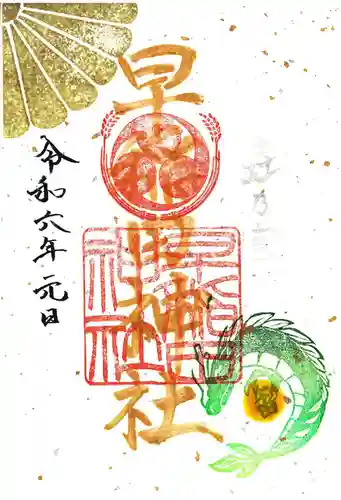 早稲田神社
早稲田
神社
令和六年 元日